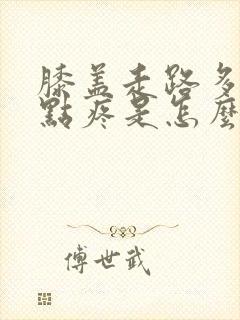 膝盖走路多
點疼是怎麼
傅世武